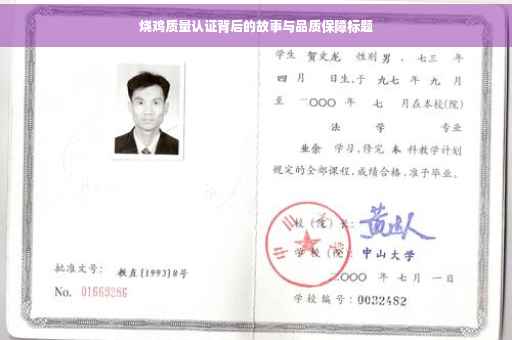 烧鸡质量认证背后的故事与品质保障标题
学生 贺文龙 性别 男 、七三 年
四 月 日生，于 九七 年 九 月
至 二〇〇〇 年 七 月在本校(院)
法 学 专业
业余 学习，修完 本 科教学计划
规定的全部课程，成绩合格，准予毕业。
校(院)长：
学校(院)：中山大学
二〇〇〇 年 七 月 一 日
学校编号：0032482
批准文号： 教直[1993]8号
No. 01663286